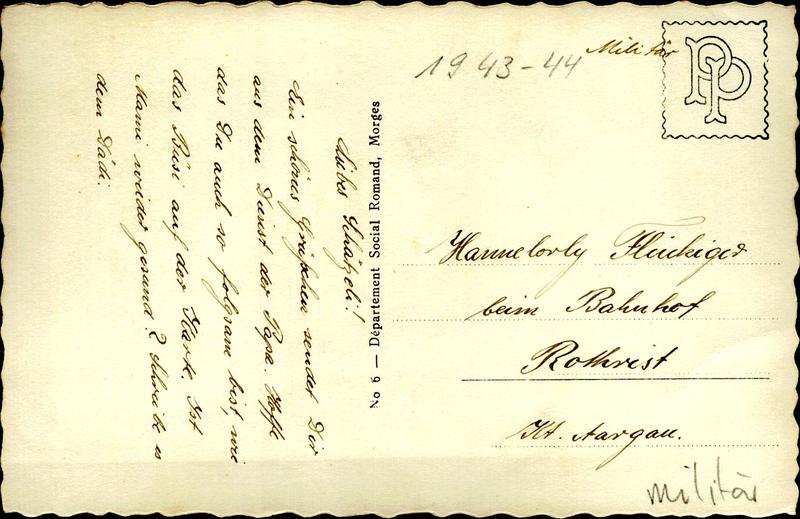 Liebes Schätzeli!
Ein schönes Grüsschen sendet Dir
aus dem Dienst der Papa. Hoffe
das Du auch so folgsam bist, wie
das Büsi auf der Karte. Ist
Mami wieder gesund? Schreibe es
dem Dädi.
No 6 — Département Social Romand, Morges
1943-44
Militär
PP
Hannelorly Flückiger
beim Bahnhof
Rothrist
Kt. Aargau.
militär